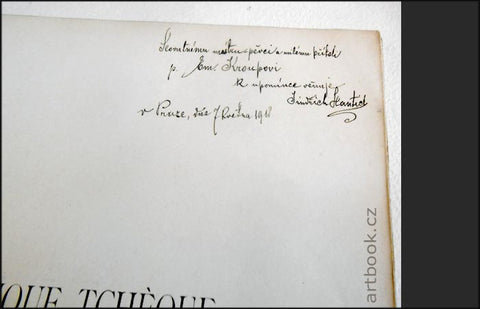 Skvostnému mistru-pěvci a milému příteli
p. Em. Kroupovi
k upomínce věnuje
Jindřich Hantich
v Praze, dne 7. května 191
TCHÈQUE
artbook.cz